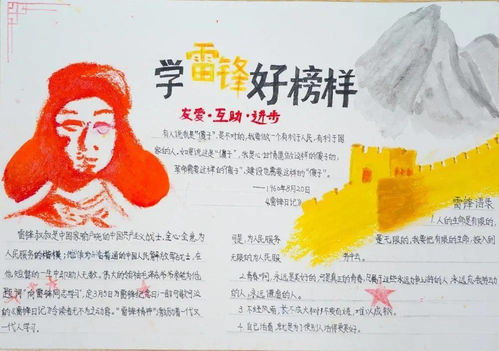 学雷锋好榜样
友爱·互助·进步
有人说我是"傻子",是不对的,我要做一个有利于人民,有利于国
家的人。如果说这是"傻子",我是心甘情愿做这样的傻子的,
革命需要这样的"傻子",建设也需要这样的"傻子"。
——1960年8月20日
《雷锋日记》
雷锋叔叔是中国家喻户晓的中国共产主义战士,全心全意为
人民服务的楷模;他作为一名普通的中国人民解放军战士,在
他短暂的一生中却助人无数。伟大的领袖毛泽东爷爷亲笔为他
题词"向雷锋同志学习",定3月5日为雷锋纪念日一部可歌可泣
的《雷锋日记》令读者无不为之动容。"雷锋精神"激励着一代又
一代人学习
雷锋语录
1.人的生命是有限的,
可是,为人民服务 是无限的,我要把有限的生命,投入到
无限的为人民服 务中去。
2.青春啊,永远是美好的,可是真正的青春,只属于这些永远力争上游的人,永远忘我劳动
的人,永远谦虚的人。
3.不经风雨,长不成大树;不受百炼,难以成钢。
4.自己活着,就是为了使别人过得更美好。